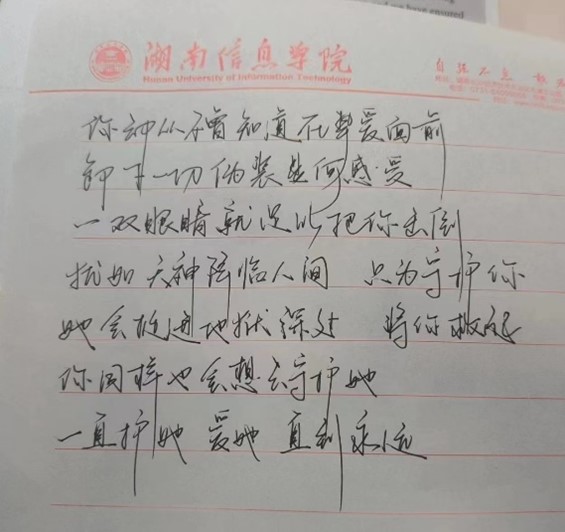 have ensured
湖南信息学院 自强不息
Hunan University of Information Technology
你却从不曾知道在挚爱面前
卸下一切伪装是何感受
一双眼睛就足以把你击倒
犹如天神降临人间 只为守护你
她会进地狱深处 将你救起
你同样也会想去守护她
一直护她 爱她 直到永远